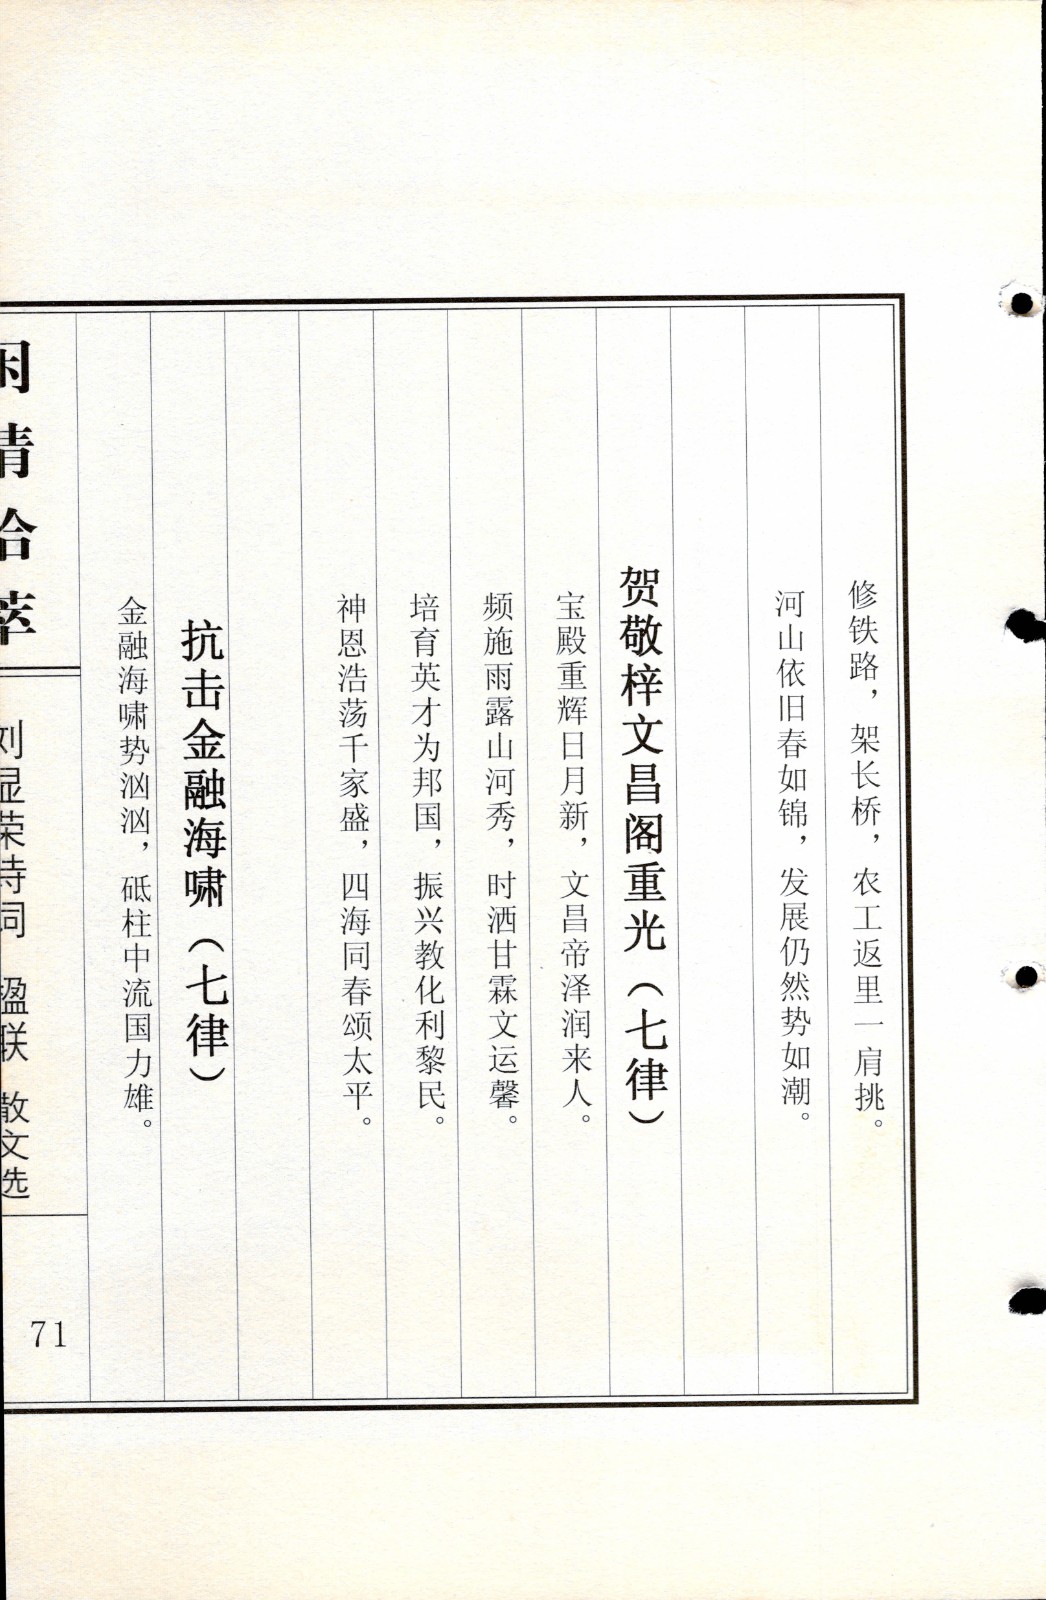 修铁路，架长桥，农工返里一肩挑。
河山依旧春如锦，发展仍然势如潮。
贺敬梓文昌阁重光（七律）
宝殿重辉日月新，文昌帝泽润来人。
频施雨露山河秀，时洒甘霖文运馨。
培育英才为邦国，振兴教化利黎民。
神恩浩荡千家盛，四海同春颂太平。
抗击金融海啸（七律）
金融海啸势汹汹，砥柱中流国力雄。
情拾萃
刘显荣诗词 楹联 散文选
71